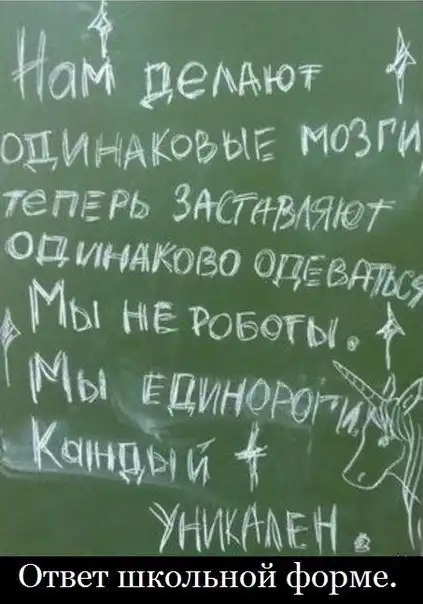 Нам делают
одинаковые мозги,
теперь заставляют
одинаково одеваться
Мы не роботы.
Мы единороги,
Каждый
уникален.
Ответ школьной форме.